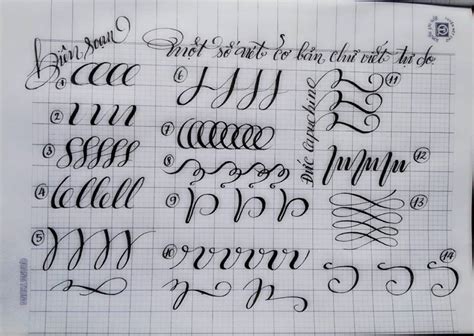 Biên soạn
một số nét cơ bản chữ viết tự do
Đức Capuchino
1
2
3
4
5
6
7
8
9
10
11
12
13
14